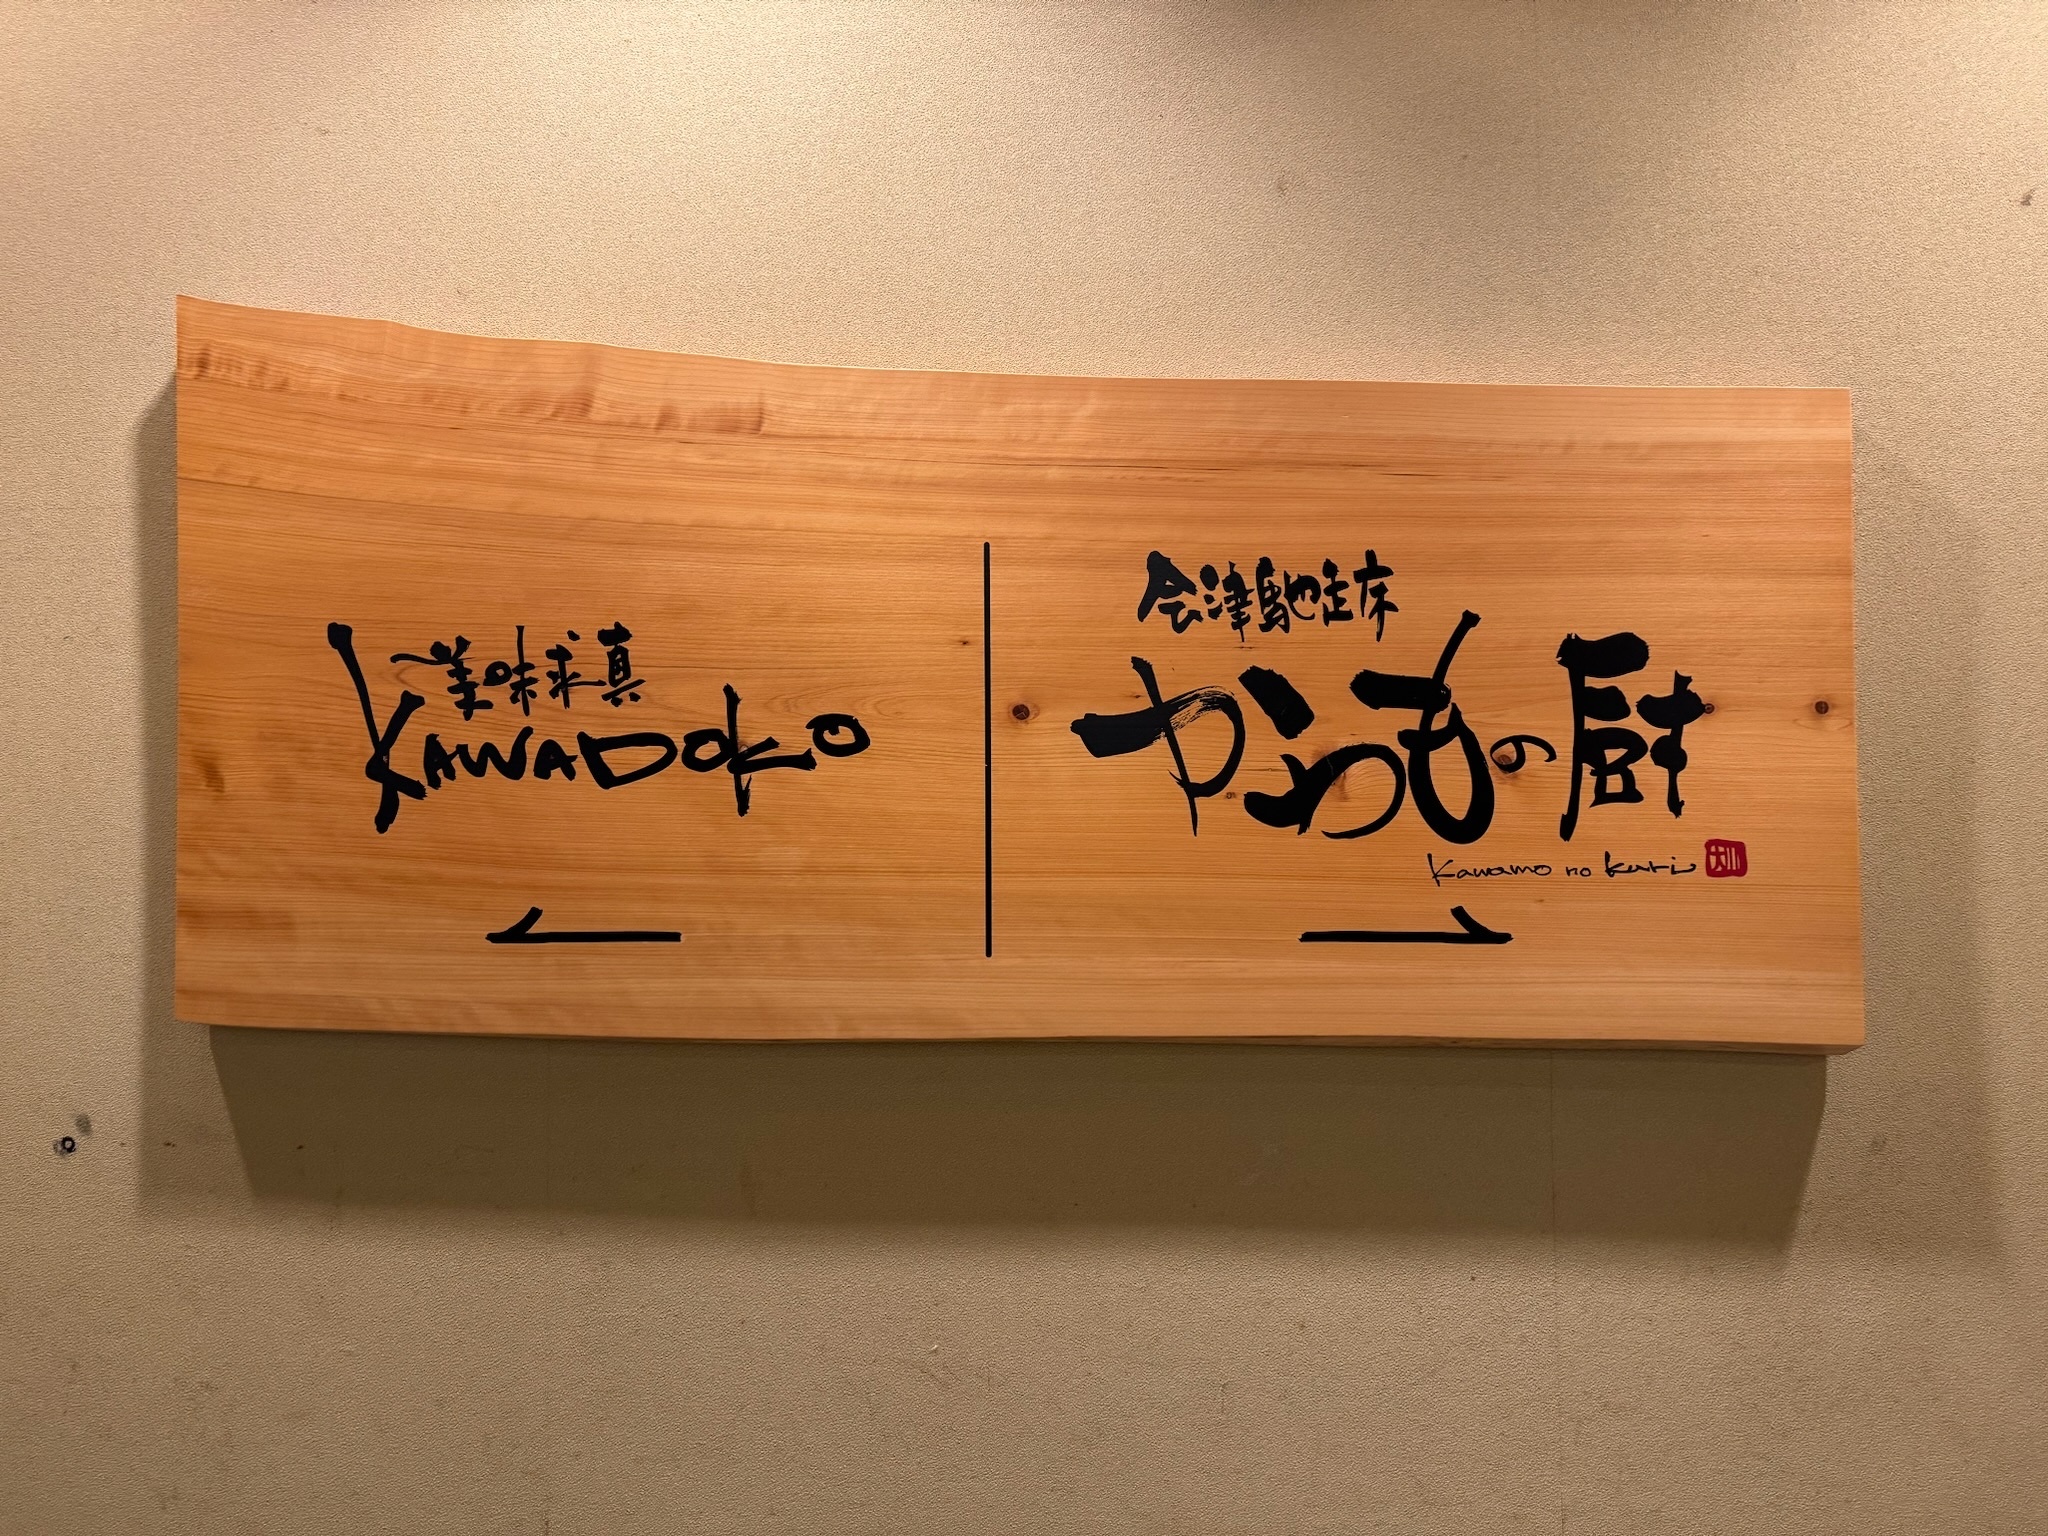 美味求真
KAWADOKO
会津馳走床
かわもの厨
Kawamo no kuri
大川